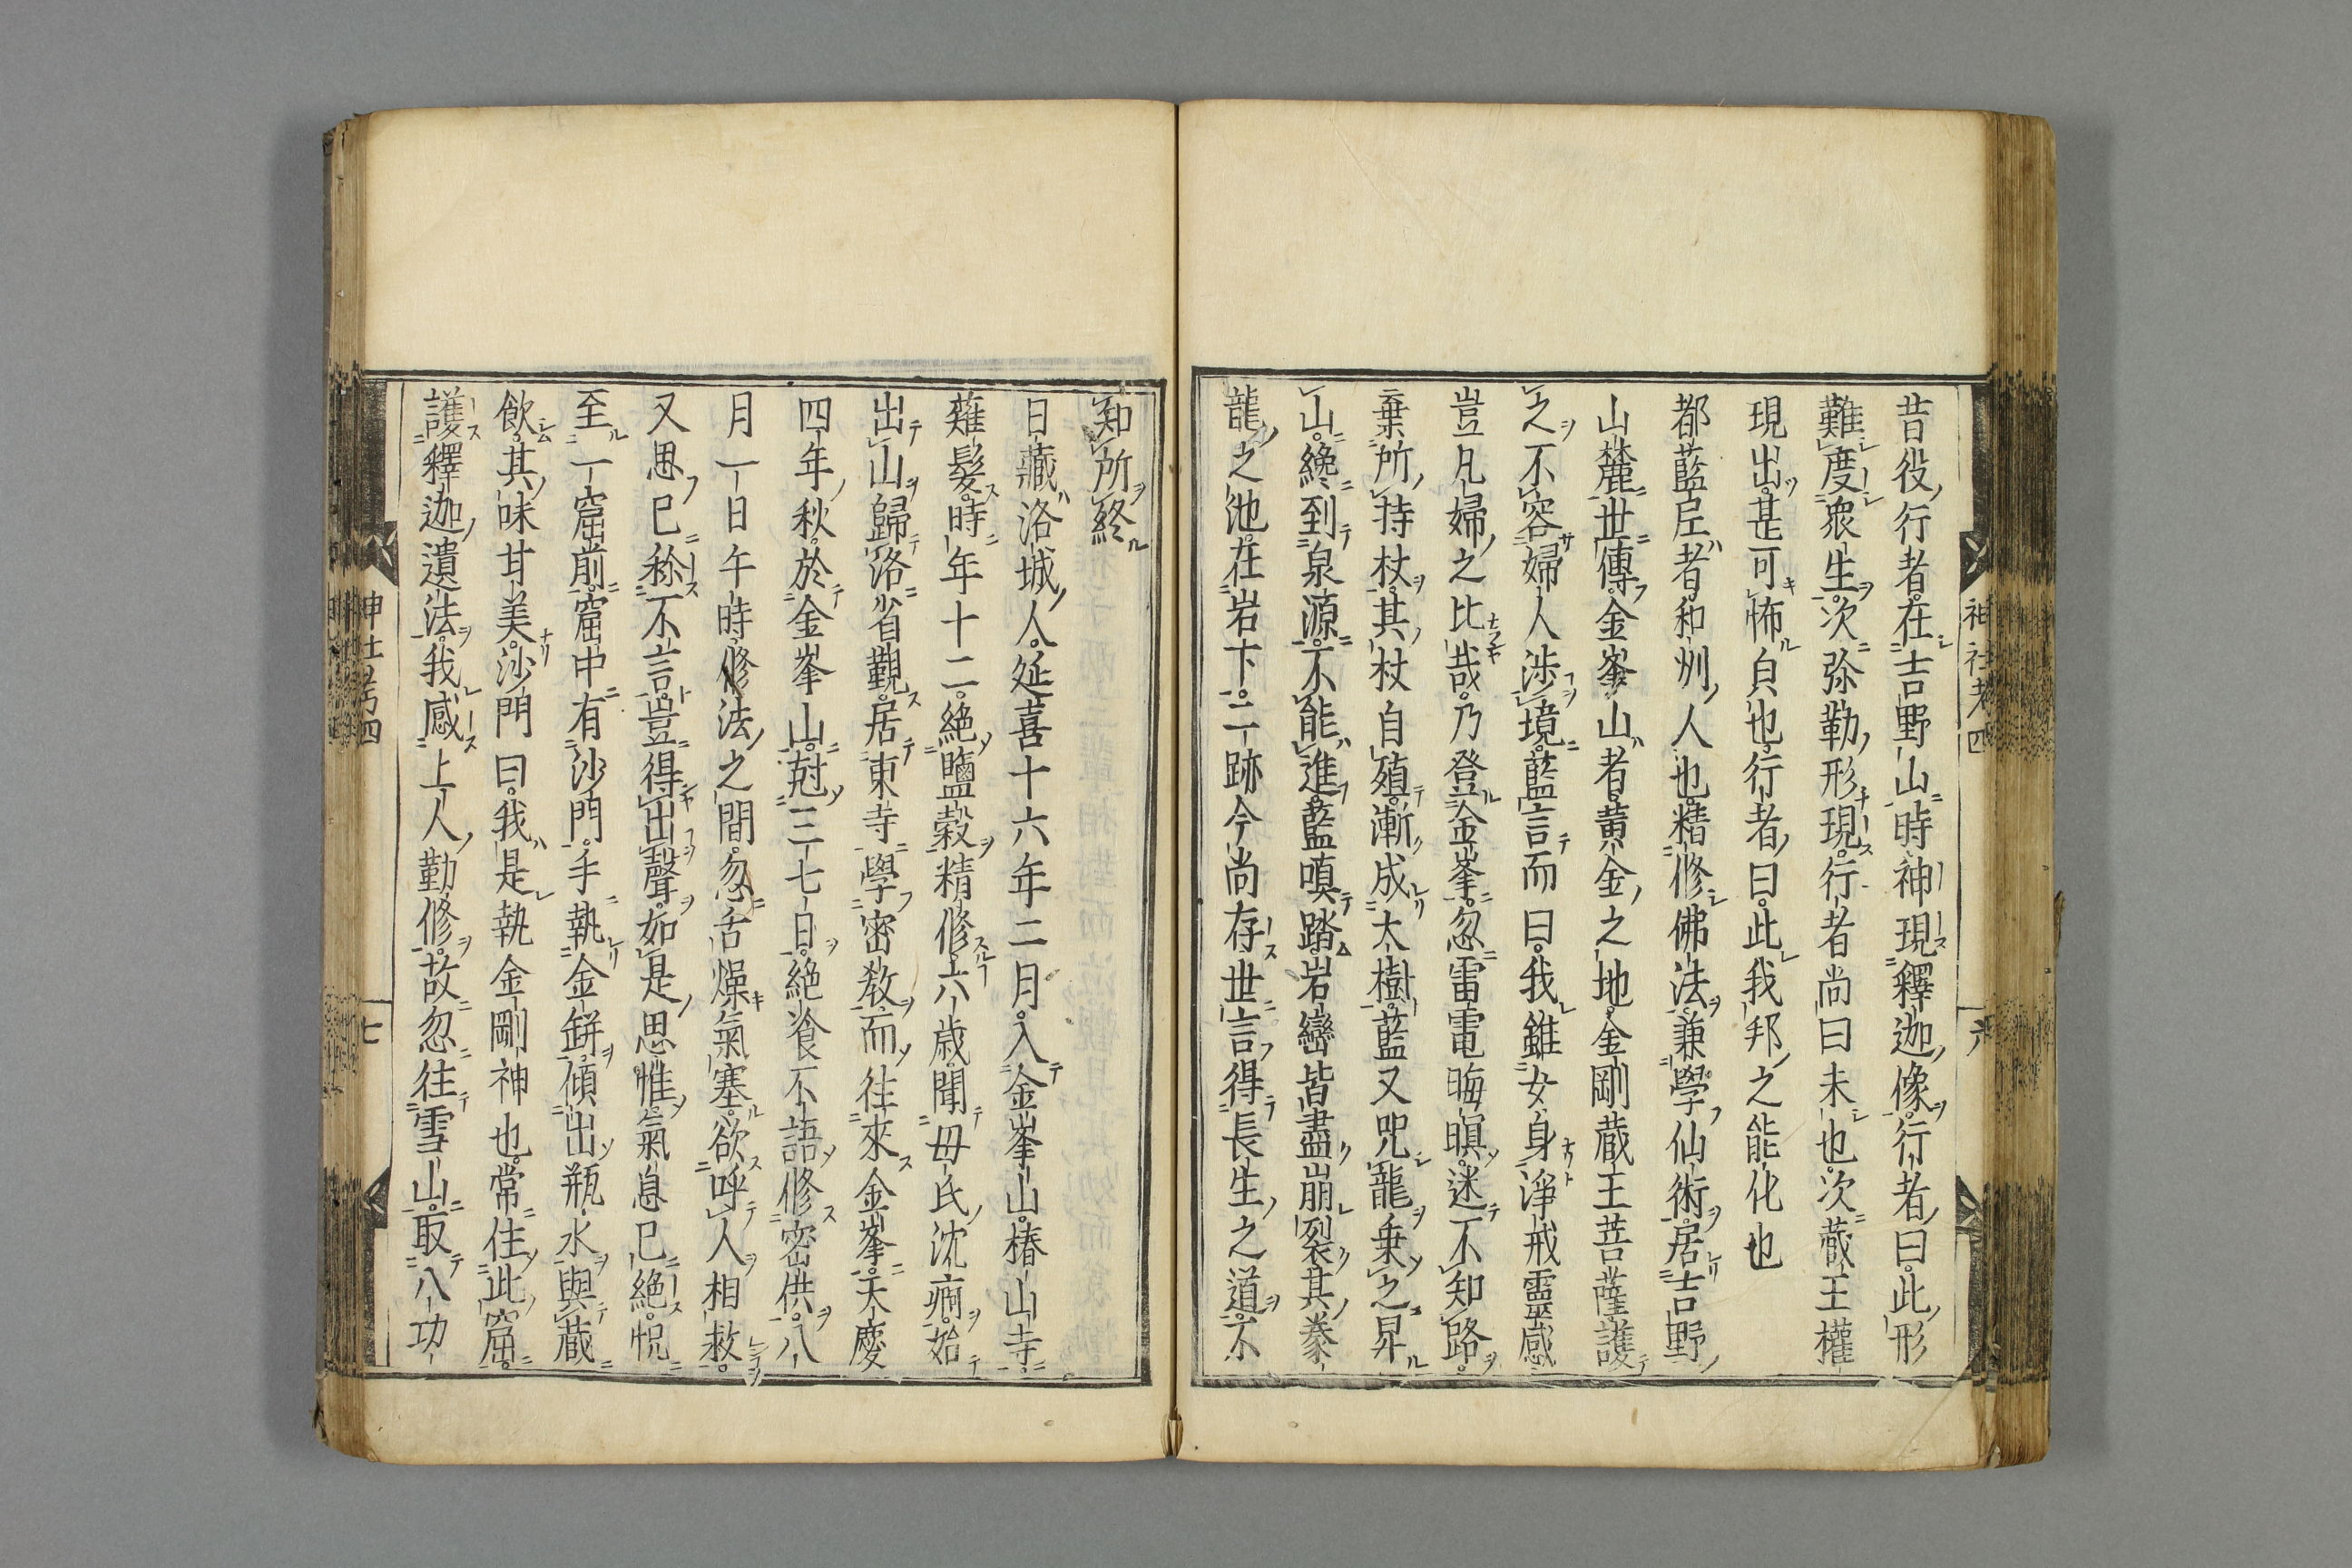 昔役行者在吉野山時神現釋迦像行者曰此形
難度衆生次弥勒形現行者尚曰未也次蔵王權
現出甚可怖皃也行者曰此我邦之能化也
都藍尼者和州人也精修佛法兼學仙術居吉野
山麓世傳金峯山者黄金之地金剛蔵王菩薩護
之不容婦人渉境藍言而曰我雖女身淨戒靈感
豈凡婦之比哉乃登金峯忽雷電晦暝迷不知路
棄所持杖其杖自殖漸成大樹藍又咒龍乗之昇
山纔到泉源不能進藍嗔踏岩巒皆盡崩裂其豢
龍之池在岩下二跡今尚存世言得長生之道不
神社考四
六
知所終
日藏洛城人延喜十六年二月入金峯山椿山寺
薙髮時年十二絶鹽穀精修六歳聞母氏沈痾始
出山歸洛省觀居東寺學密教而往來金峯天慶
四年秋於金峯山尅三七日絶飡不語修密供八
月一日午時修法之間忽舌燥氣塞欲呼人相救
又思已稱不言豈得出聲如是思惟氣息已絶怳
至一窟前窟中有沙門手執金缾傾出瓶水與蔵
飲其味甘美沙門曰我是執金剛神也常住此窟
護釋迦遺法我感上人勤修故忽往雪山取八功
神社考四
七